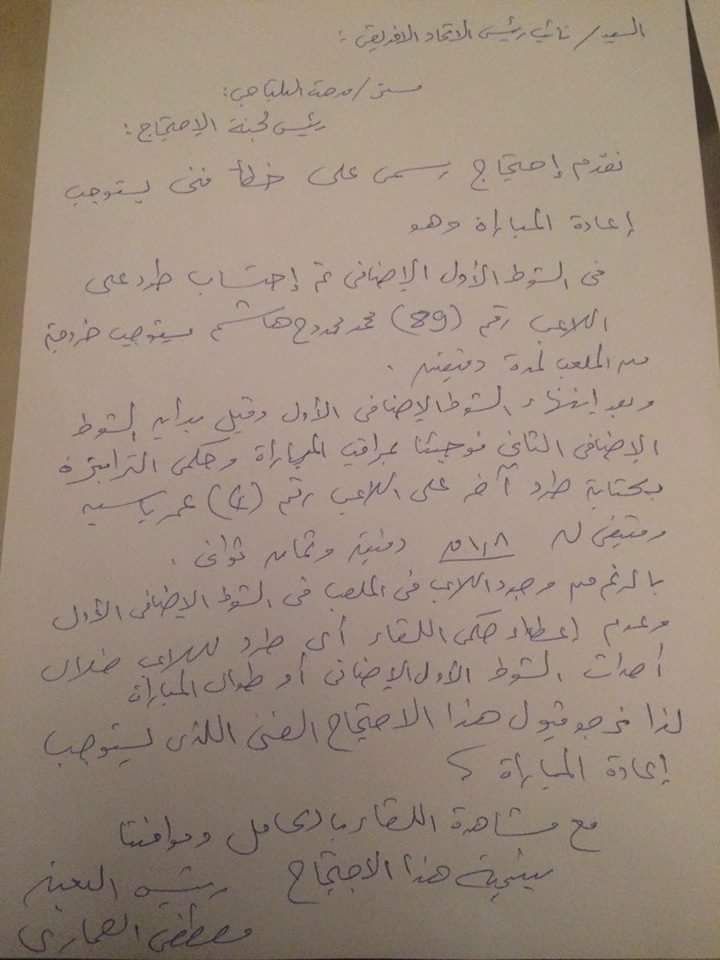 السيد/ نائب رئيس الاتحاد الافريقى :
مستر/ مدحت البلتاجى :
رئيس لجنة الإحتجاج :
نقدم إحتجاج رسمى على خطأ فنى يستوجب
إعادة المباراة وهو
فى الشوط الأول الإضافى تم إحتساب طرد على
اللاعب رقم (89) محمد ممدوح هاشم يستوجب خروجه
من الملعب لمدة دقيقتين .
وبعد إنتهاء الشوط الإضافى الأول وقبل بداية الشوط
الإضافى الثانى فوجئنا بمراقب المباراة وحكمى الترابيزة
بكتابة طرد آخر على اللاعب رقم عمر ياسين
ومتبقى له ١,٠٨ دقيقة وثمان ثوانى .
بالرغم من وجود اللاعب فى الملعب فى الشوط الإضافى الأول
وعدم إعطاء حكمى اللقاء أى طرد للاعب خلال
أحداث الشوط الأول الإضافى أو طوال المباراة
لذا نرجو قبول هذا الاحتجاج الفنى اللذى يستوجب
إعادة المباراة
مع مشاهدة اللقاء بالكامل وموافتنا
بنتيجة هذا الاحتجاج رئيس البعثة
مصطفى